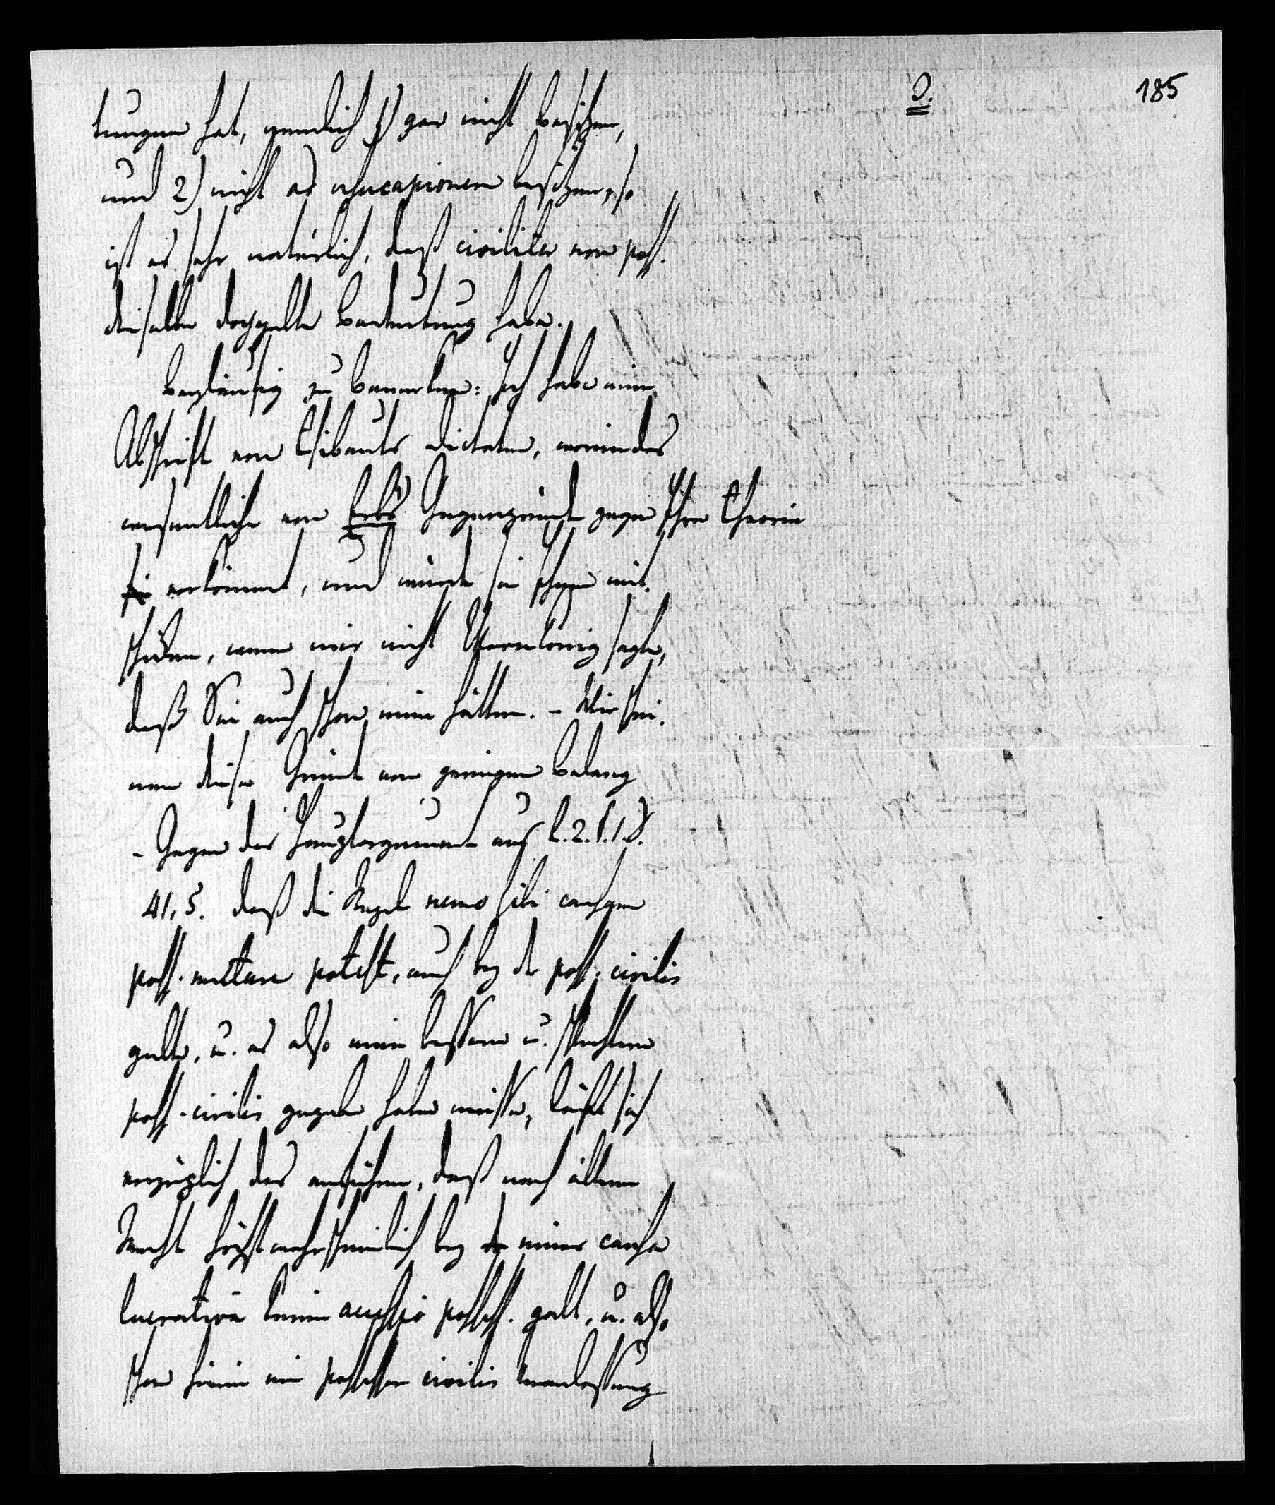 2.
185
tungen hat, nemlich 1) gar nicht besitzen,
und 2) nicht ad usucapionem besitzen, so
ist es sehr natürlich, daß civiliter non poss.
dieselbe doppelte Bedeutung habe.
Beyläufig zu bemerken: Ich habe eine
Abschrift von Thibauts Dictaten, worin das
wesentliche von Erbs Gegengründe gegen Ihre Theorie
vorkömmt, und würde sie schon mit-
schicken, wenn mir nicht Warnkönig sagte,
daß Sie auch schon eine hätten. – Mir schei-
nen diese Gründe von geringem Belang
– Gegen das Hauptargument aus l. 2. §. 1. D.
41, 5. daß die Regel nemo sibi causam
poss. mutare potest, auch bey der poss. civilis
galt, u. es also eine bessere u. schlechtere
poss. civilis gegeben haben müsse, läßt sich
vorzüglich das anführen, daß nach älterm
Recht höchst wahrscheinlich bey einer causa
lucrativa keine accessio possess. galt, u. also
schon hierin ein possessor civilis Veranlassung